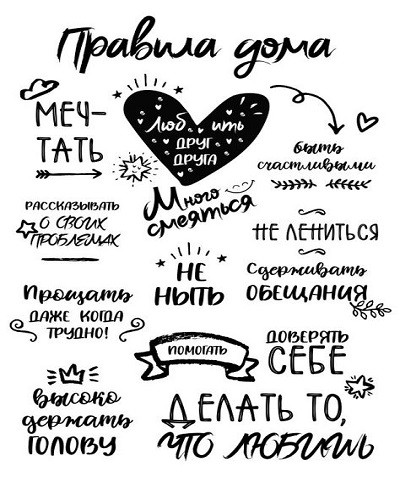 Правила дома
МЕЧ-
ТАТЬ
Люб ить
ДРУГ
ДРУГА
быть
счастливыми
Много
смеяться
РАССКАЗЫВАТЬ
О СВОИХ
ПРОБЛЕМАХ
НЕ ЛЕНИТЬСЯ
НЕ
НЫТЬ
Сдерживать
ОБЕЩАНИЯ
Прощать
ДАЖЕ КОГДА
ТРУДНО!
ПОМОГАТЬ
ДОВЕРЯТЬ
СЕБЕ
высоко
держать
ГОЛОВУ
ДЕЛАТЬ ТО,
ЧТО ЛЮБИШЬ